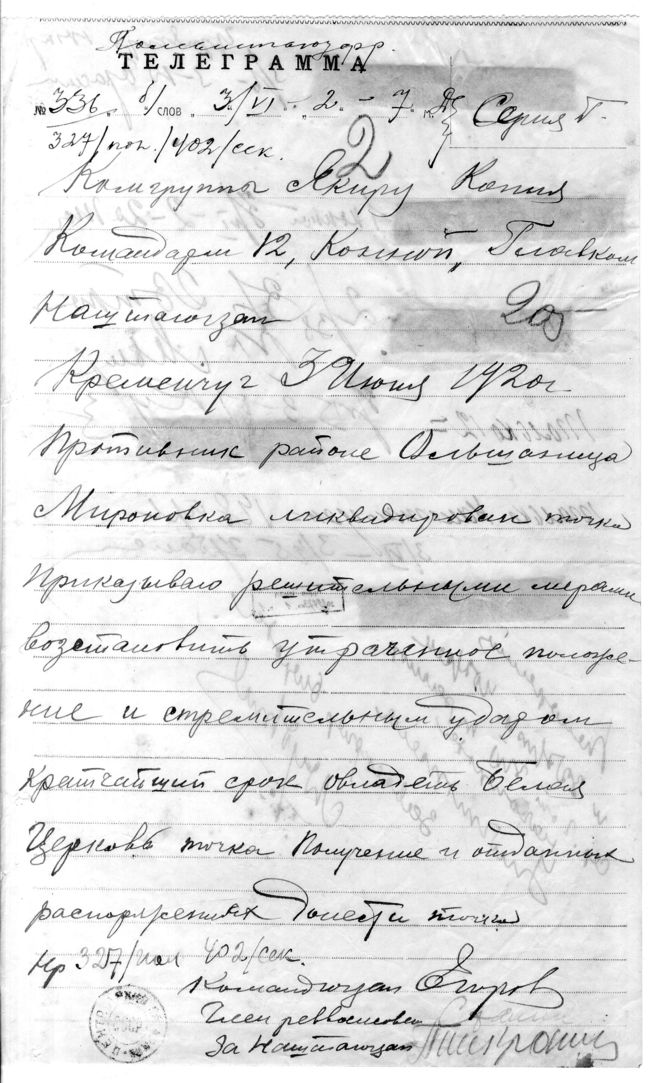 ТЕЛЕГРАММА
№ 336. б/слов 3/VI 2 - 7 Серия Г.
327/пол./402/сек.
2
Комгруппы Якиру Копия
Командарм 12, Конной, Главком
Наштаюзап 205
Кременчуг 3 Июня 1920г
Противник районе Ольшаница
Мироновка ликвидирован точка
Приказываю решительными мерами
возстановить утраченное положе-
ние и стремительным ударом
кратчайший срок овладеть Белая
Церковь точка Получение и отданных
распоряжениях донести точка
Нр 327/пол 402/сек.
Командюзап Егоров
Член реввоенсовета
За Наштаюзап